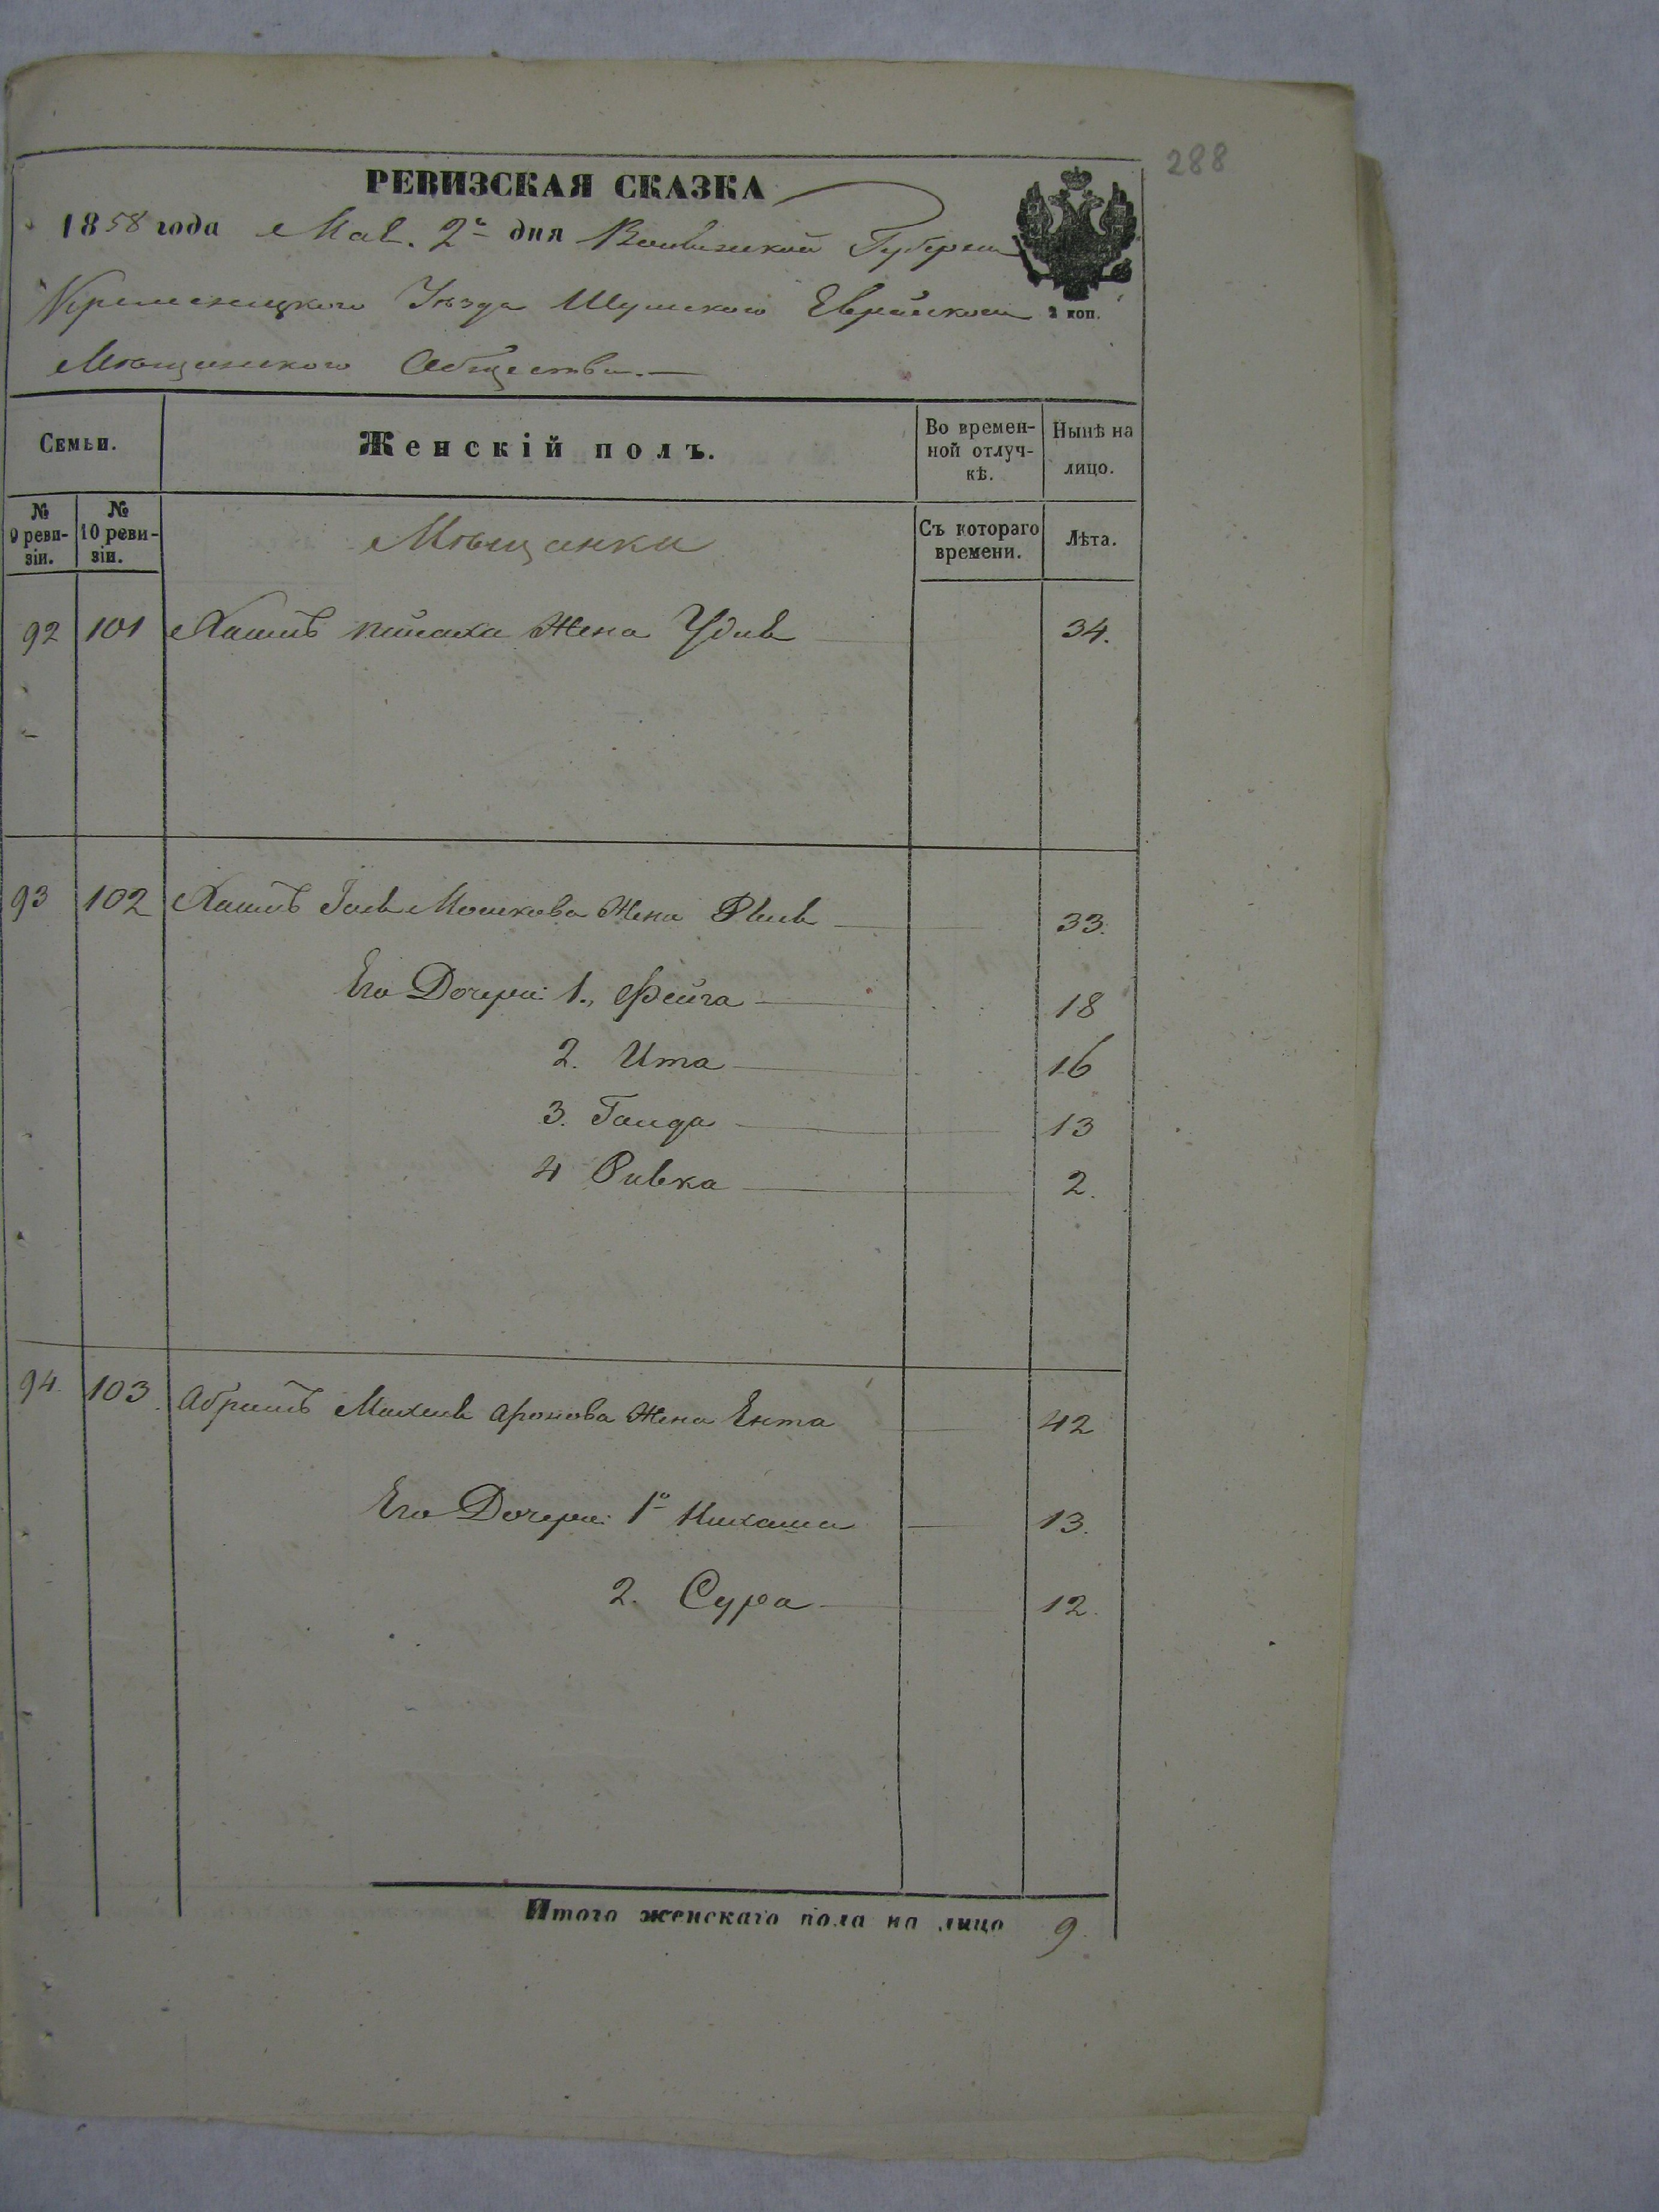 288
РЕВИЗСКАЯ СКАЗКА
1858 года Маѣ. 2го дня Волынской Губерніи
Кременецкого Уѣзда Шумского Еврейского
2 коп.
Мѣщанского Общества.
Семьи.
Женскій полъ.
Во времен-
ной отлуч-
кѣ.
Нынѣ на
лицо.
№
9 реви-
зіи.
№
10 реви-
зіи.
Мѣщанки
Съ котораго
времени.
Лѣта.
92 101 Жена 34.
93 102 Мошкова Жена 33.
Его Дочери: 1., Фейга 18
2. Ита 16
3. 13
4 Ривка 2.
94. 103. Аронова Жена Ента 42
Его Дочери: 1о 13.
2. Сура 12.
Итого женскаго пола на лицо 9.